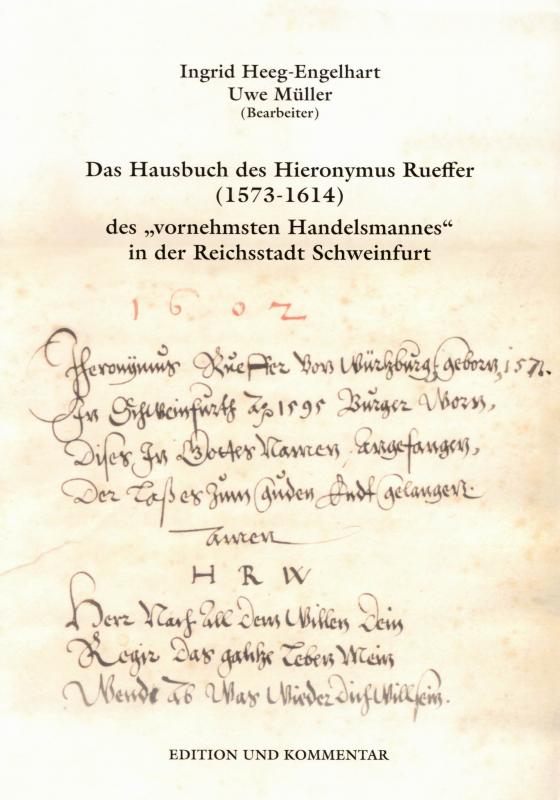 Ingrid Heeg-Engelhart
Uwe Müller
(Bearbeiter)
Das Hausbuch des Hieronymus Rueffer
(1573-1614)
des „vornehmsten Handelsmannes“
in der Reichsstadt Schweinfurt
1602
Iheronÿmus Rueffer Von Würtzburg, geborn,
In Schweinfurth Ao 1595 Burger Worn,
Dises In Gottes Namen, angefangen,
Der Laß es zum guden Endt gelangen.
Amen
H R W
Herr Nach All Dem Willen Dein
Regir Das gantze Leben Mein
Wende Ab Was Wieder Dich
EDITION UND KOMMENTAR